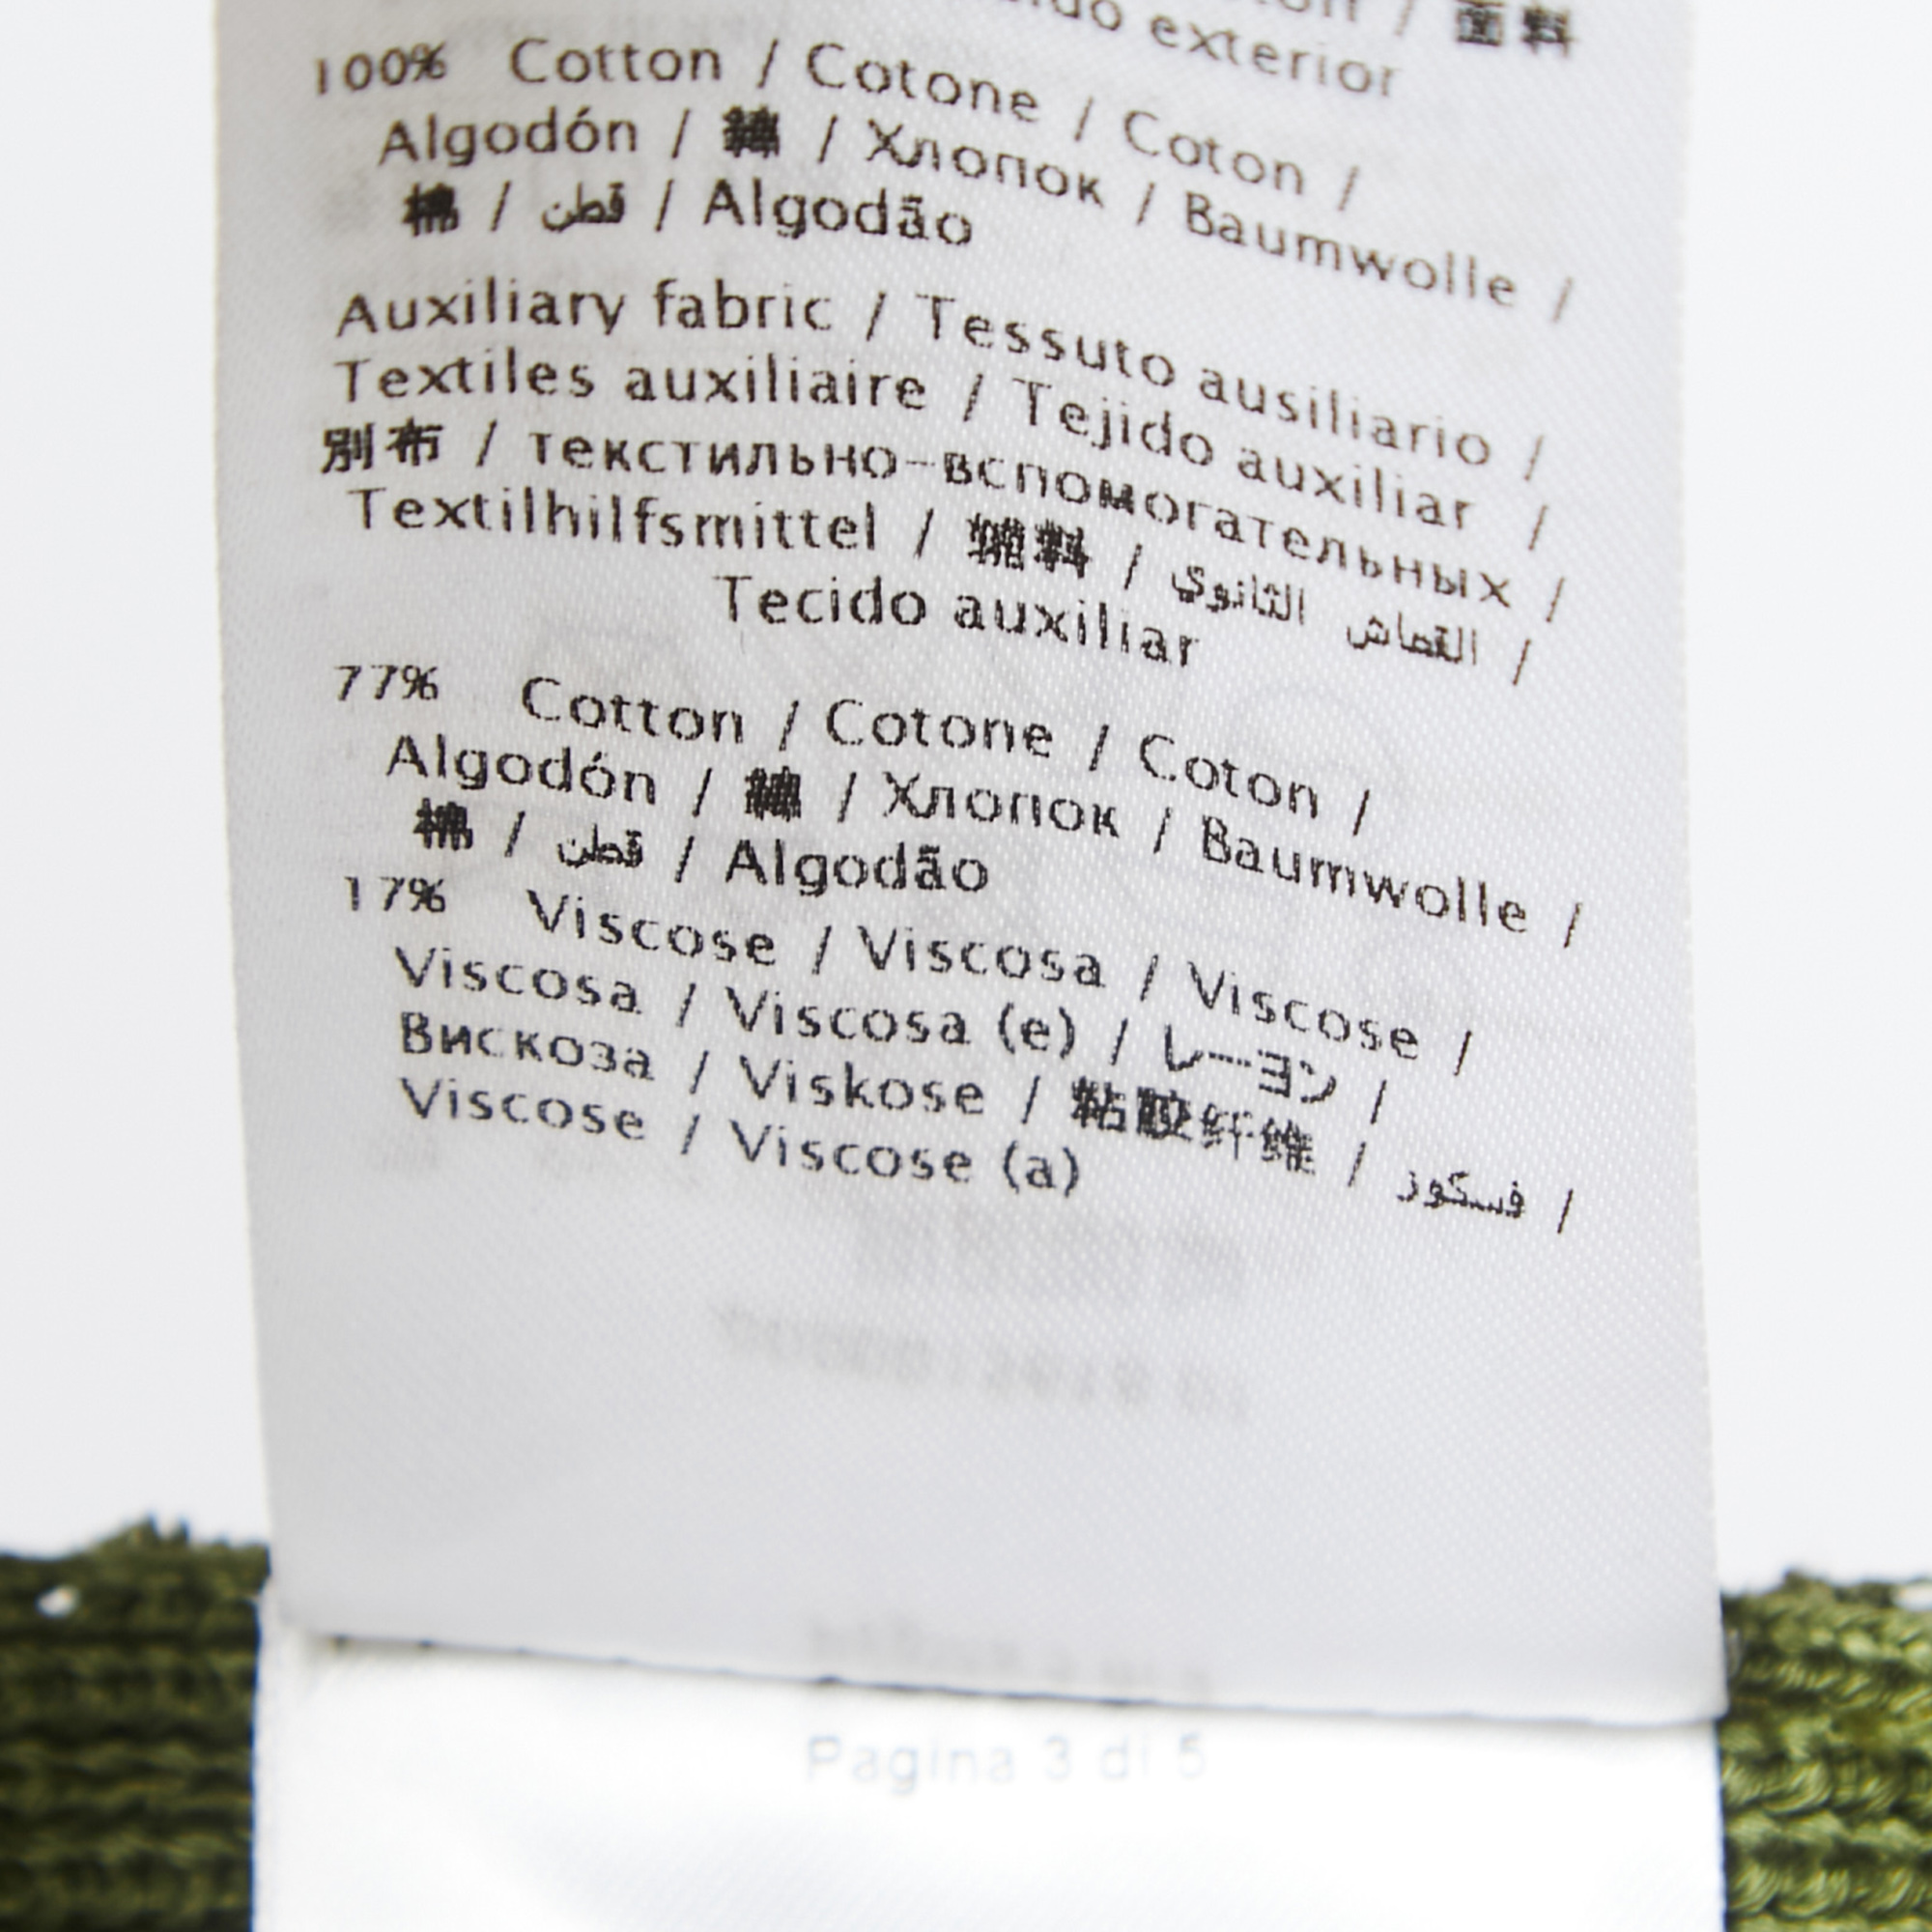 / 面料
exterior
100% Cotton / Cotone / Coton /
Algodón / 綿 / Хлопок / Baumwolle /
棉 / قطن / Algodão
Auxiliary fabric / Tessuto ausiliario /
Textiles auxiliaire / Tejido auxiliar /
別布 / текстильно-вспомогательных /
Textilhilfsmittel / 辅料 / القماش الثانوي /
Tecido auxiliar
77% Cotton / Cotone / Coton /
Algodón / 綿 / Хлопок / Baumwolle /
棉 / قطن / Algodão
17% Viscose / Viscosa / Viscose /
Viscosa / Viscosa (e) / レーヨン /
Вискоза / Viskose / 粘胶纤维 / فسكوز /
Viscose / Viscose (a)
Pagina 3 di 5